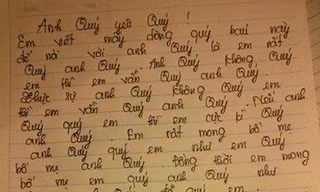 Anh Quý yêu Quý !
Em viết mấy dòng quý báu này
để nó với anh Quý là em rất
Quý anh Quý. Anh Quý không Quý
em thì em vẫn Quý anh Quý.
Thực sự anh Quý không Quý em
thì em vẫn Quý anh Quý. Nếu anh
Quý quý em thì em cực Quý
anh Quý. Em rất mong bố mẹ
anh Quý quý em như em Quý
bố mẹ anh Quý. Đồng thời em mong
bố mẹ em quý anh Quý như
quý em